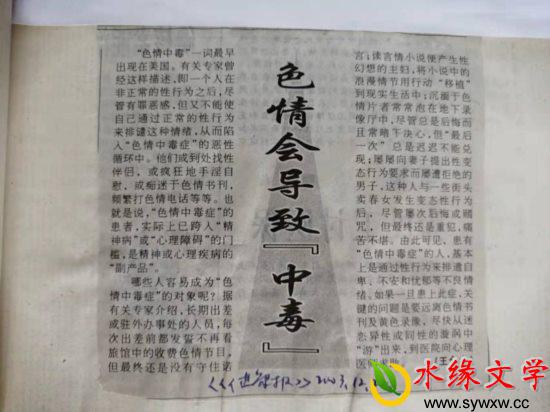 “色情中毒”一词最早
出现在美国。有关专家曾
经这样描述,即一个人在
非正常的性行为之后,尽
管有罪恶感,但又不能使
自己通过正常的性行为
来排遣这种情绪,从而陷
入“色情中毒症”的恶性
循环中。他们或到处找性
伴侣,或疯狂地手淫自
慰,或痴迷于色情书刊,
频繁打色情电话等等。也
就是说,“色情中毒症”的
患者,实际上已跨入“精
神病”或“心理障碍”的门
槛,是精神或心理疾病的
“副产品”。
哪些人容易成为“色
情中毒症”的对象呢?据
有关专家介绍,长期出差
或驻外办事处的人员,每
次出差前都发誓不再看
旅馆中的收费色情节目,
但最终还是没有守住诺
色情会导致『中毒』
言;读言情小说便产生性
幻想的主妇,将小说中的
浪漫情节用行动“移植”
到现实生活中;沉湎于色
情片者常常泡在地下录
像厅中,尽管总是后悔而
且常暗下决心,但“最后
一次”总是迟迟不能兑
现;屡屡向妻子提出性变
态行为要求而屡遭拒绝的
男子,这种人与一些街头
卖春女发生变态性行为
后,尽管屡次后悔或赌
咒,但最终还是重犯,痛
苦不堪。由此可见,患有
“色情中毒症”的人,基本
上是通过性行为来排遣自
卑、不安和忧郁等不良情
绪。如果一旦患上此症,关
键的问题是要远离色情书
刊及黄色录像,尽快从迷
恋异性或同性的漩涡中
“游”出来,到医院向心理
医
(王
报》2003.12.
水缘文学
www.sywxw.cc